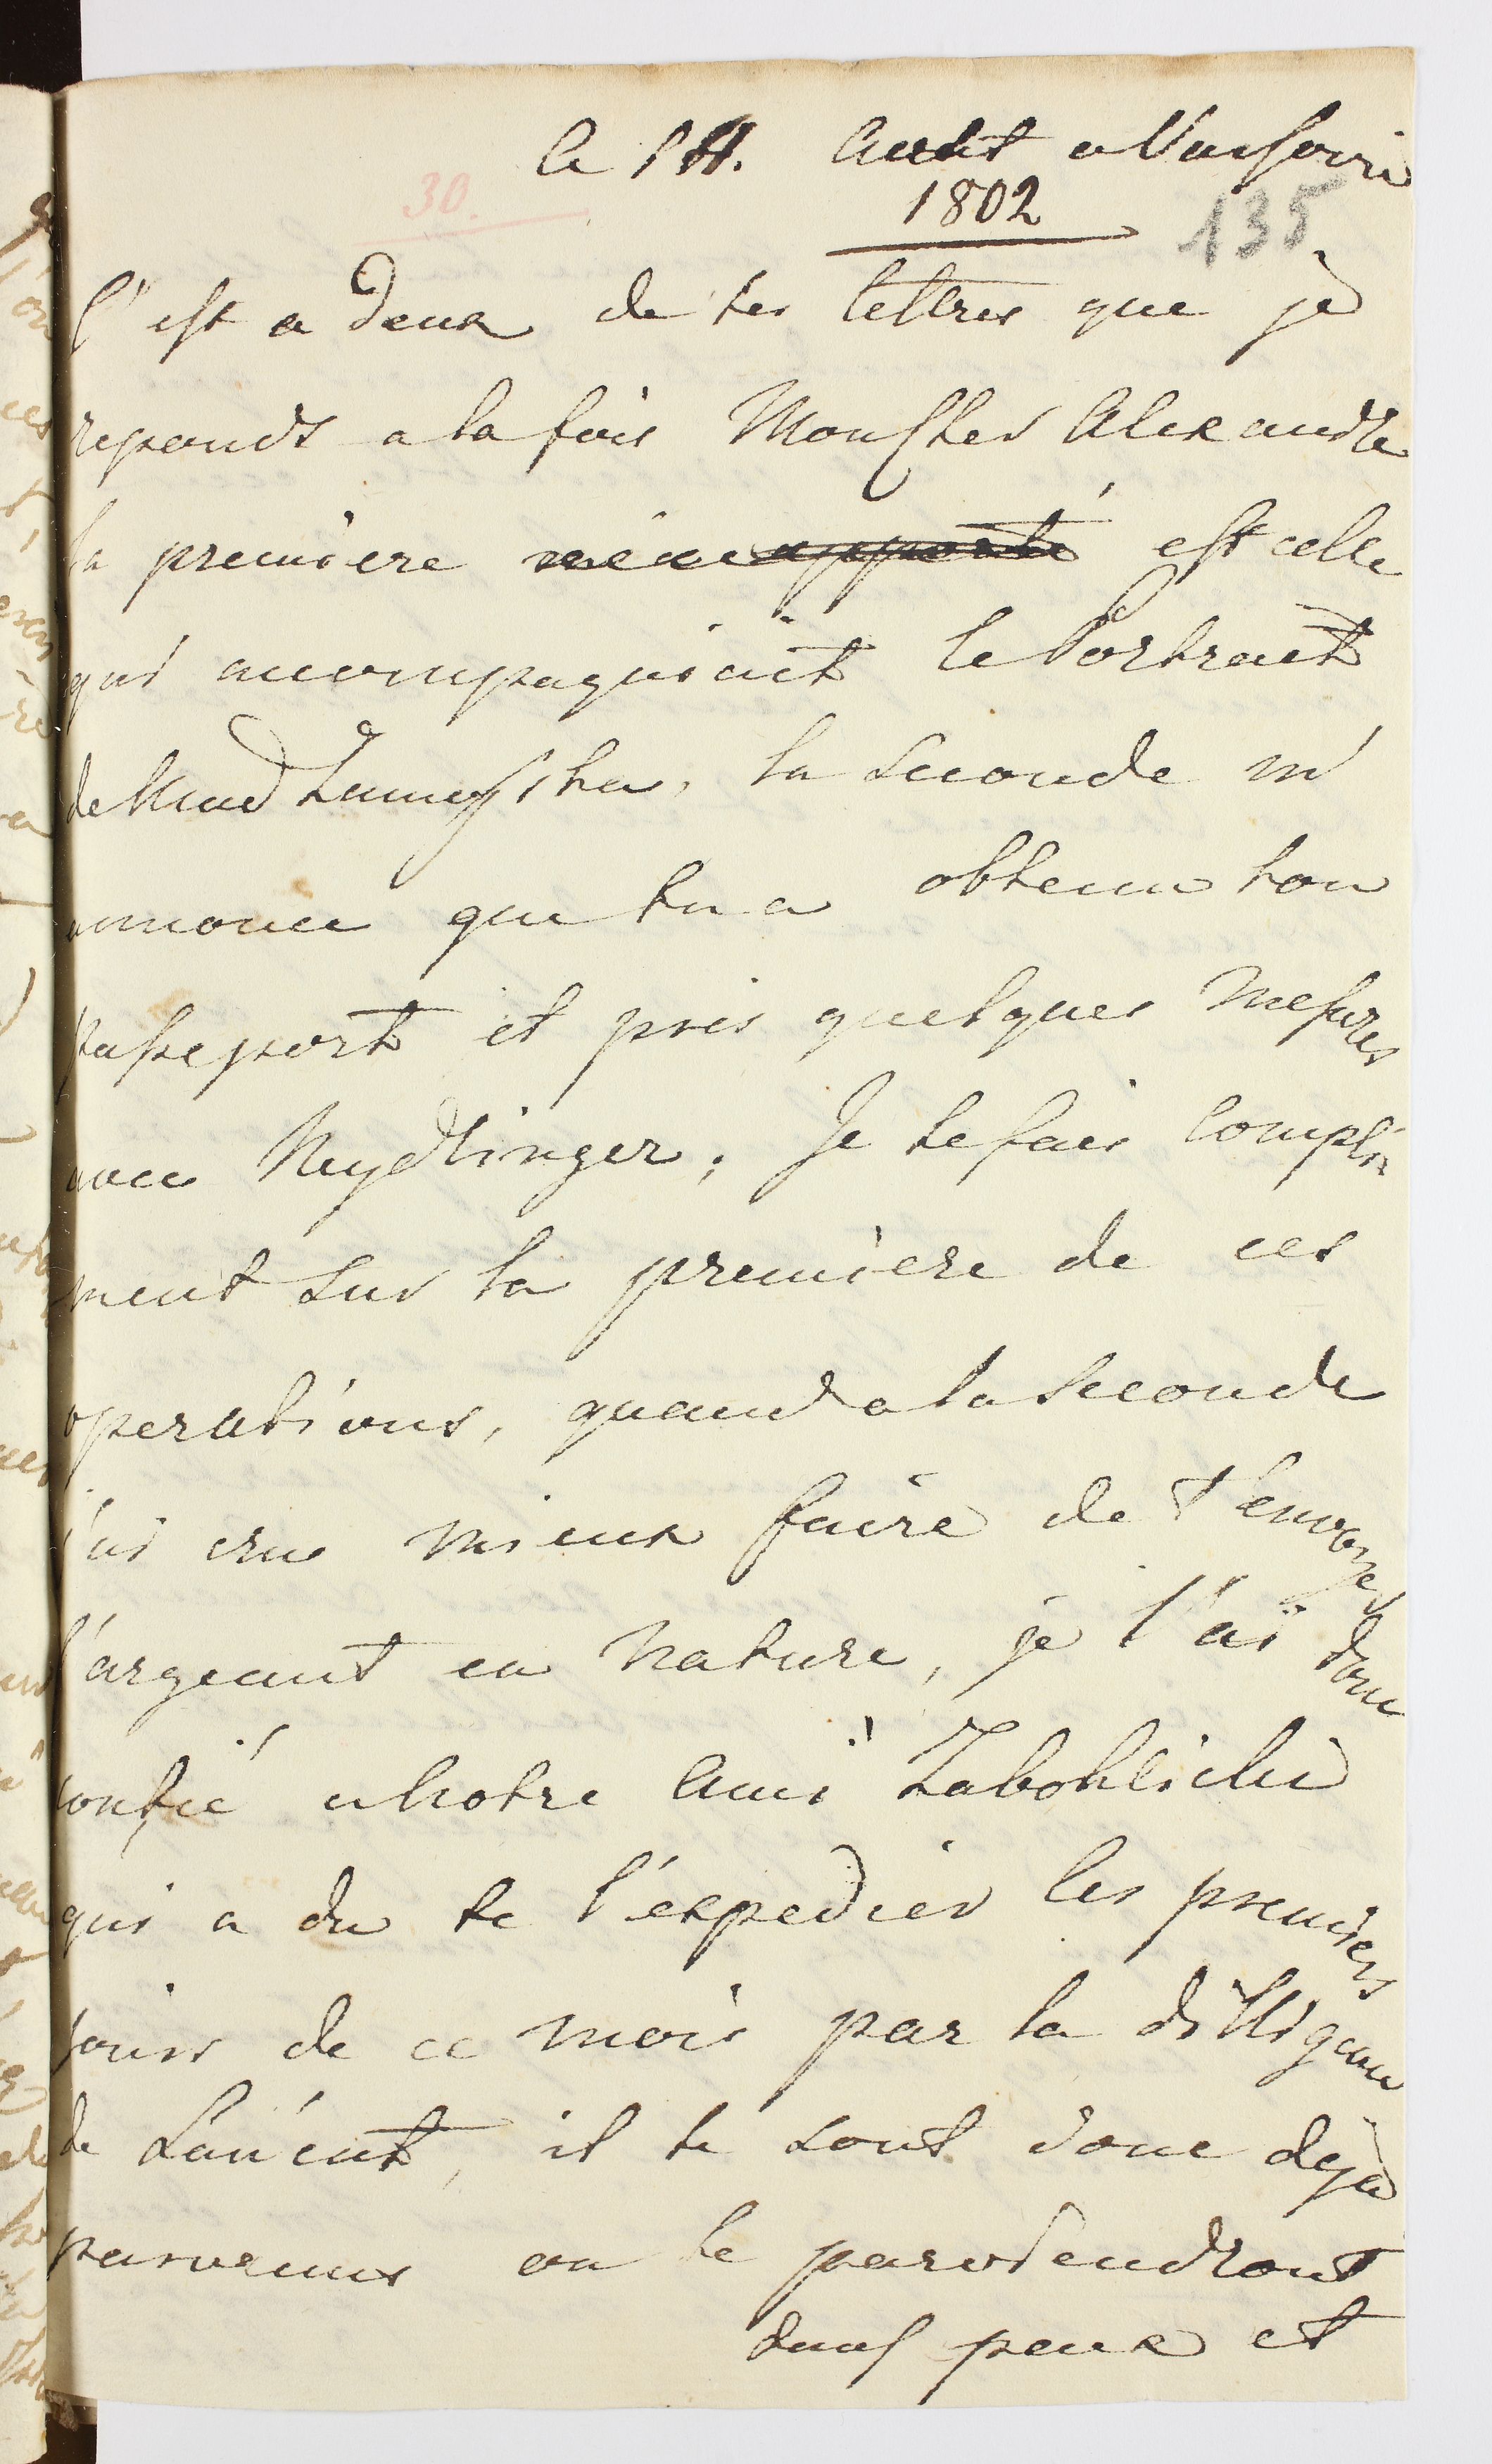 le 14. Aout a Varsovie
30.
1802
135
C'est a deux de tes lettres que je
reponds a la fois Mon cher Alexandre
la premiere est celle
qui accompagniait le Portrait
de Mad Zamoyska, la seconde m'
annonce que tu a obtenu ton
passeport et pris quelques Mesures
avec Neydlinger, Je te fais Compli
ment sur la premiere de ces
operations, quand a la Seconde
j'ai cru mieux faire de t'envoyer
l'argeant en Nature, je l'ai donc
confié a Notre Ami
qui a du te l'expedier les premiers
jours de ce mois par la dilligence
de il te sont donc deja
parvenus ou te parviendront
dans peux et